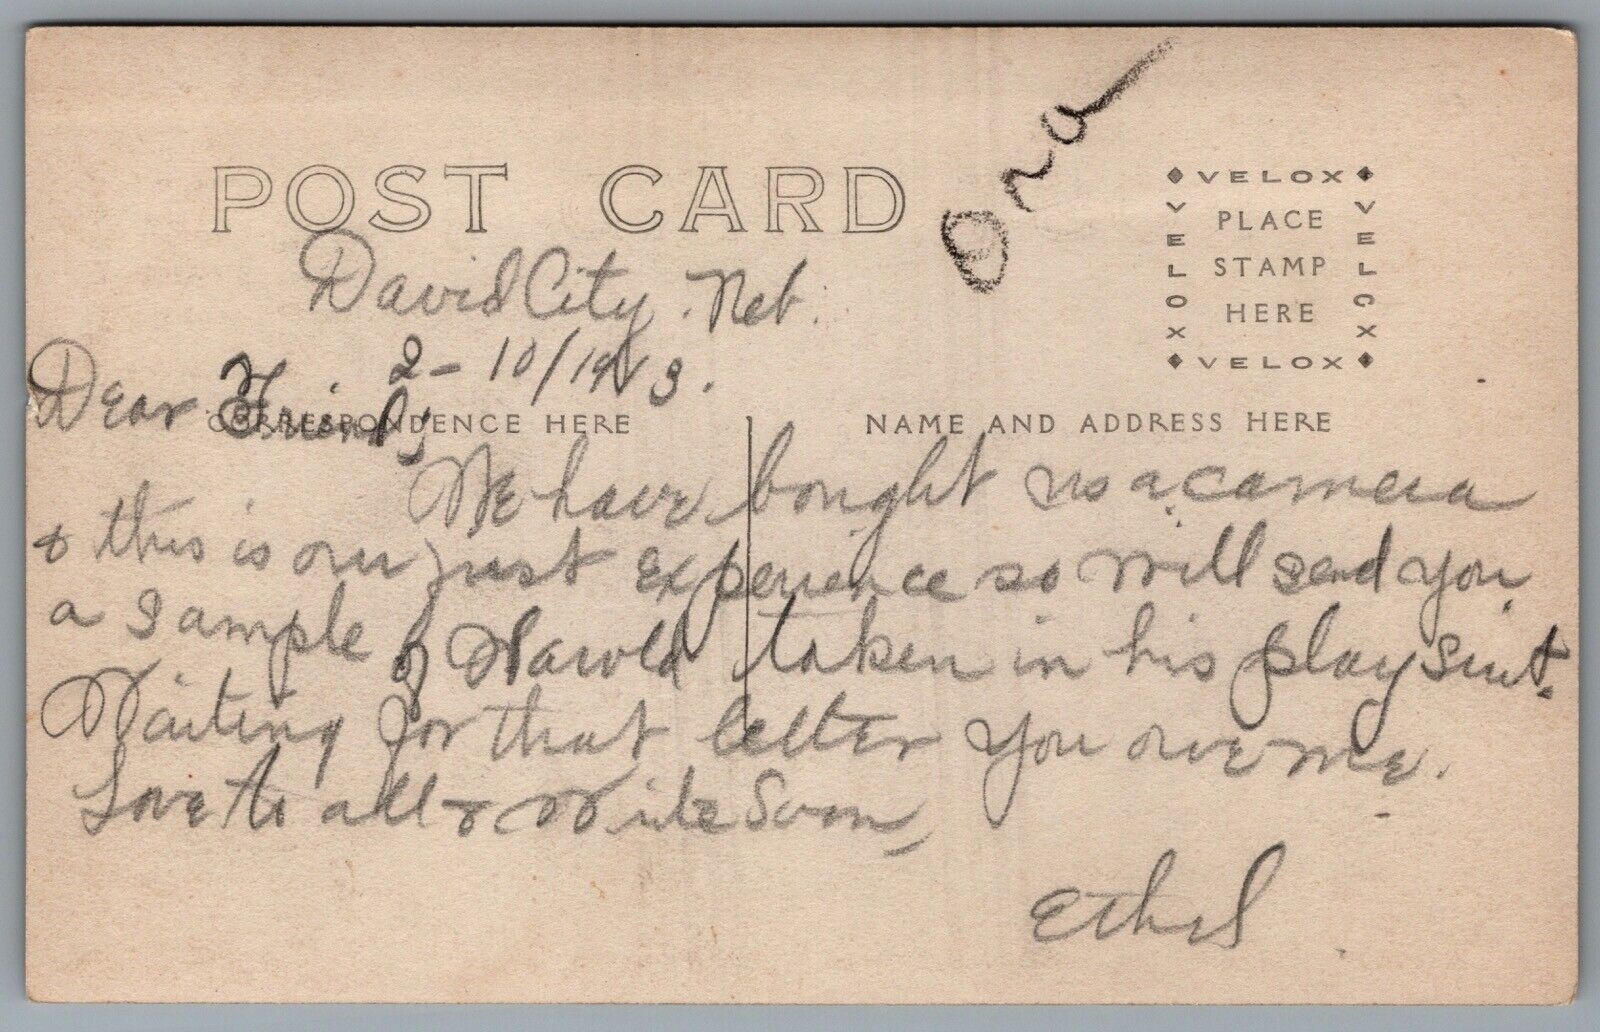 Ona
POST CARD
VELOX
VELOX
VELOX
VELOX
PLACE
STAMP
HERE
David City. Neb.
2-10/1913.
Dear Friend,
CORRESPONDENCE HERE
NAME AND ADDRESS HERE
We have bought us a camera
& this is our just experience so will send you
a sample of Harold taken in his play suit.
Waiting for that letter you owe me.
Love to all & Write Soon,
Ethel